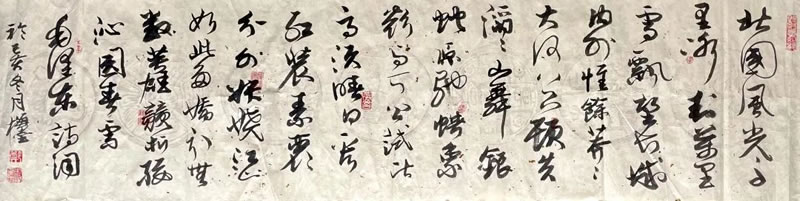 北國風光千
里冰封萬里
雪飄望长城
内外惟餘莽々
大河上下頓失
滔々山舞銀
蛇原驰蜡象
欲與天公試比
高須晴日看
红装素裹
分外妖娆江山
如此多嬌引無
數英雄競折腰
沁園春雪
毛澤东詩詞
於己亥冬月